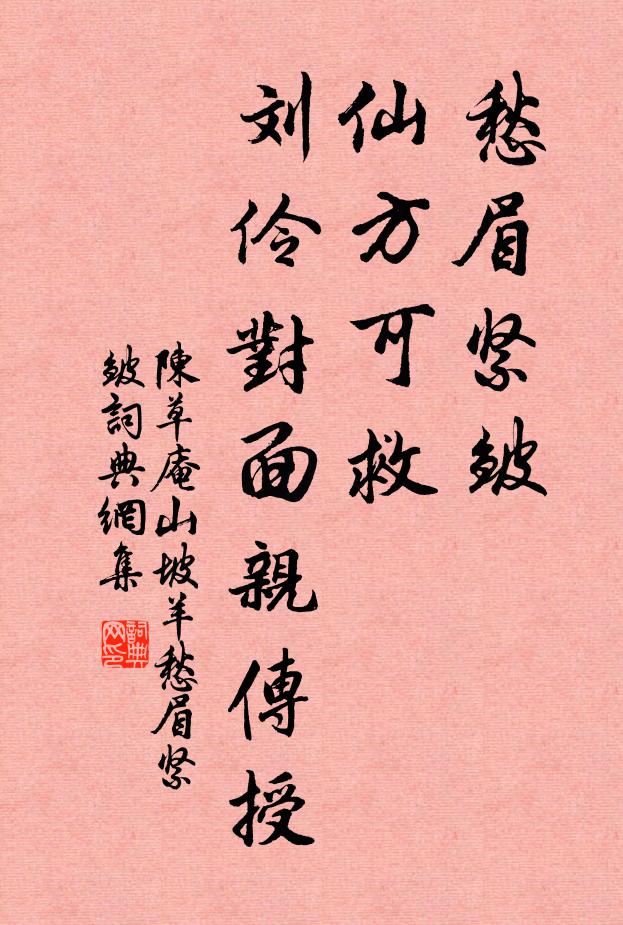 愁眉紧皱
仙方可救
刘伶對面親傳授
陳草庵山坡羊愁眉紧
皱詞典網集
詞典
网印